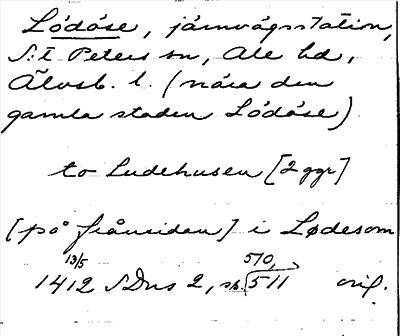 Lödöse, järnvägsstation,
S:t Peters sn, Ale hd,
Älvsb. l. (nära den
gamla staden Lödöse)
to Ludehusen [2 ggr]
[på frånsidan] i Lødesom
13/5 570,
1412 SDns 2, sk. 511 orig.